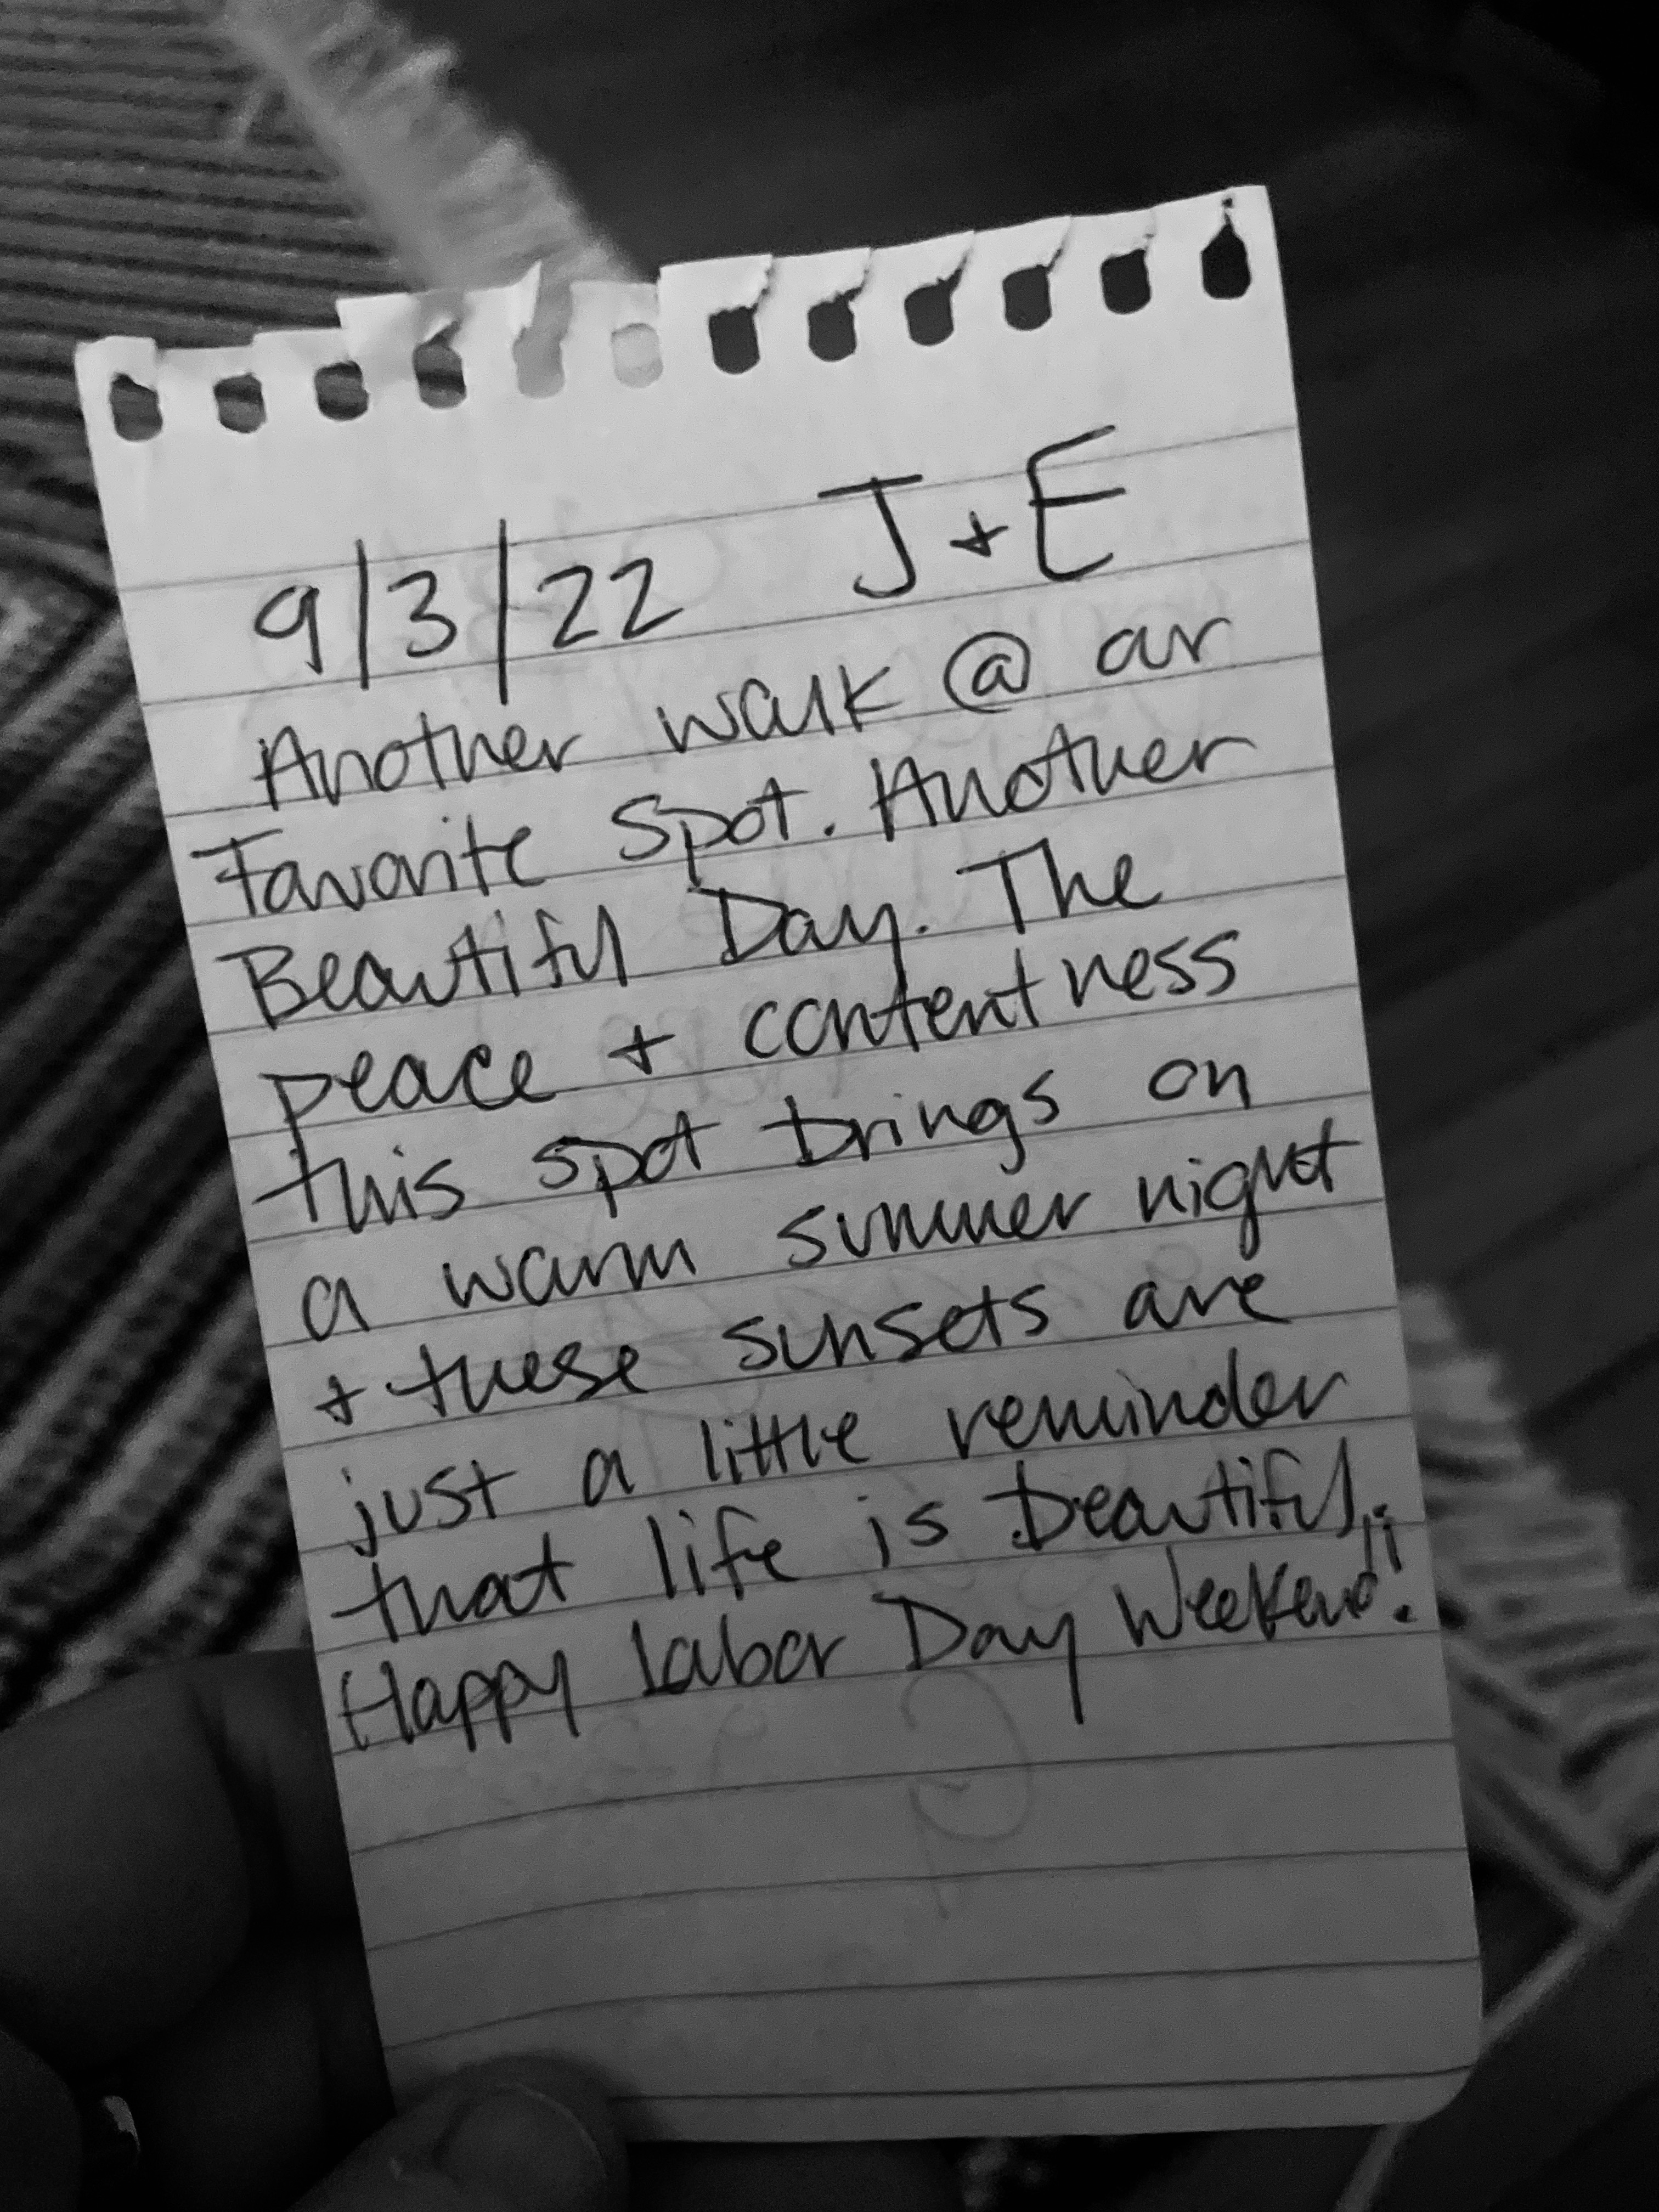 9/3/22 J + E
Another walk @ ar
Favorite Spot. Another
Beautiful Day. The
peace + contentness
this spot brings on
a warm summer night
+ these sunsets are
just a little reminder
that life is beautiful
Happy Labor Day Weekend!